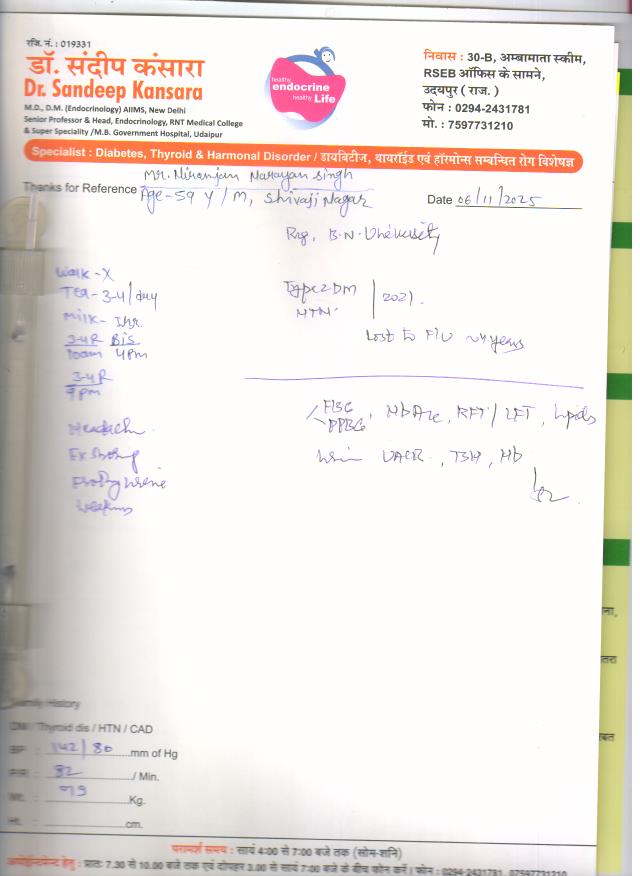 रजि. नं. : 019331
डॉ. संदीप कंसारा
Dr. Sandeep Kansara
M.D., D.M. (Endocrinology) AIIMS, New Delhi
Senior Professor & Head, Endocrinology, RNT Medical College
& Super Speciality /M.B. Government Hospital, Udaipur
healthy
endocrine
healthy Life
निवास : 30-B, अम्बामाता स्कीम,
RSEB ऑफिस के सामने,
उदयपुर ( राज. )
फोन : 0294-2431781
मो. : 7597731210
Specialist : Diabetes, Thyroid & Harmonal Disorder / डायबिटीज, थायरॉईड एवं हॉरमोन्स सम्बन्धित रोग विशेषज्ञ
Mr. Niranjan Narayan Singh
Thanks for Reference Age-59 Y/M, Shivaji Nagar
Date 06/11/2025
Reg. B.N. University
Walk-X
Tea-3-4/day
Milk-
3-4R Bis
10am 4pm
3-4R
9pm
Type2DM
HTN
2021.
Lost to F/U ~4 years
FBG
PPBG, HbA1c, RFT/LFT, Lipids
UACR, TSH, Hb
Headache
Frothy urine
Family History
DM / Thyroid dis / HTN / CAD
BP : 142/80 mm of Hg
P/R : 82 / Min.
Wt. : 79 Kg.
Ht. : cm.
परामर्श समय : सायं 4:00 से 7:00 बजे तक (सोम-शनि)
अपोईन्टमेन्ट हेतु : प्रातः 7.30 से 10.00 बजे तक एवं दोपहर 3.00 से सायं 7.00 बजे के बीच फोन करें। फोन : 0294-2431781, 07597731210